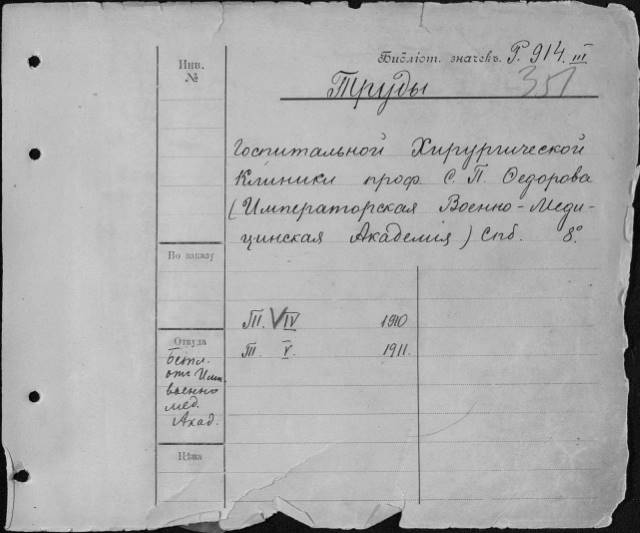 Библіот. значекъ Р. 914. III
Инв.
№
351
Труды
Госпитальной Хирургической
Клиники проф. С. П. Федорова
(Императорская Военно-Меди-
цинская Академія) Спб. 8º.
По заказу
Т. III. IV 1910
Т. V. 1911.
Откуда
Безпл.
отъ Имп.
военно
мед.
Акад.
Цѣна